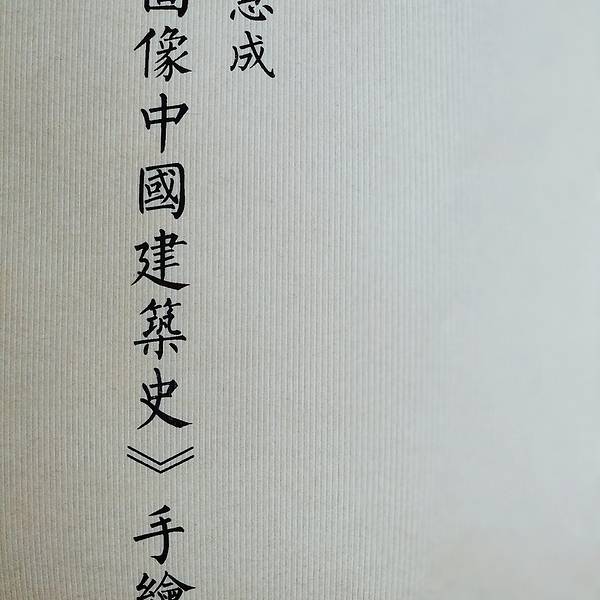 思成
圖像中國建築史》手繪